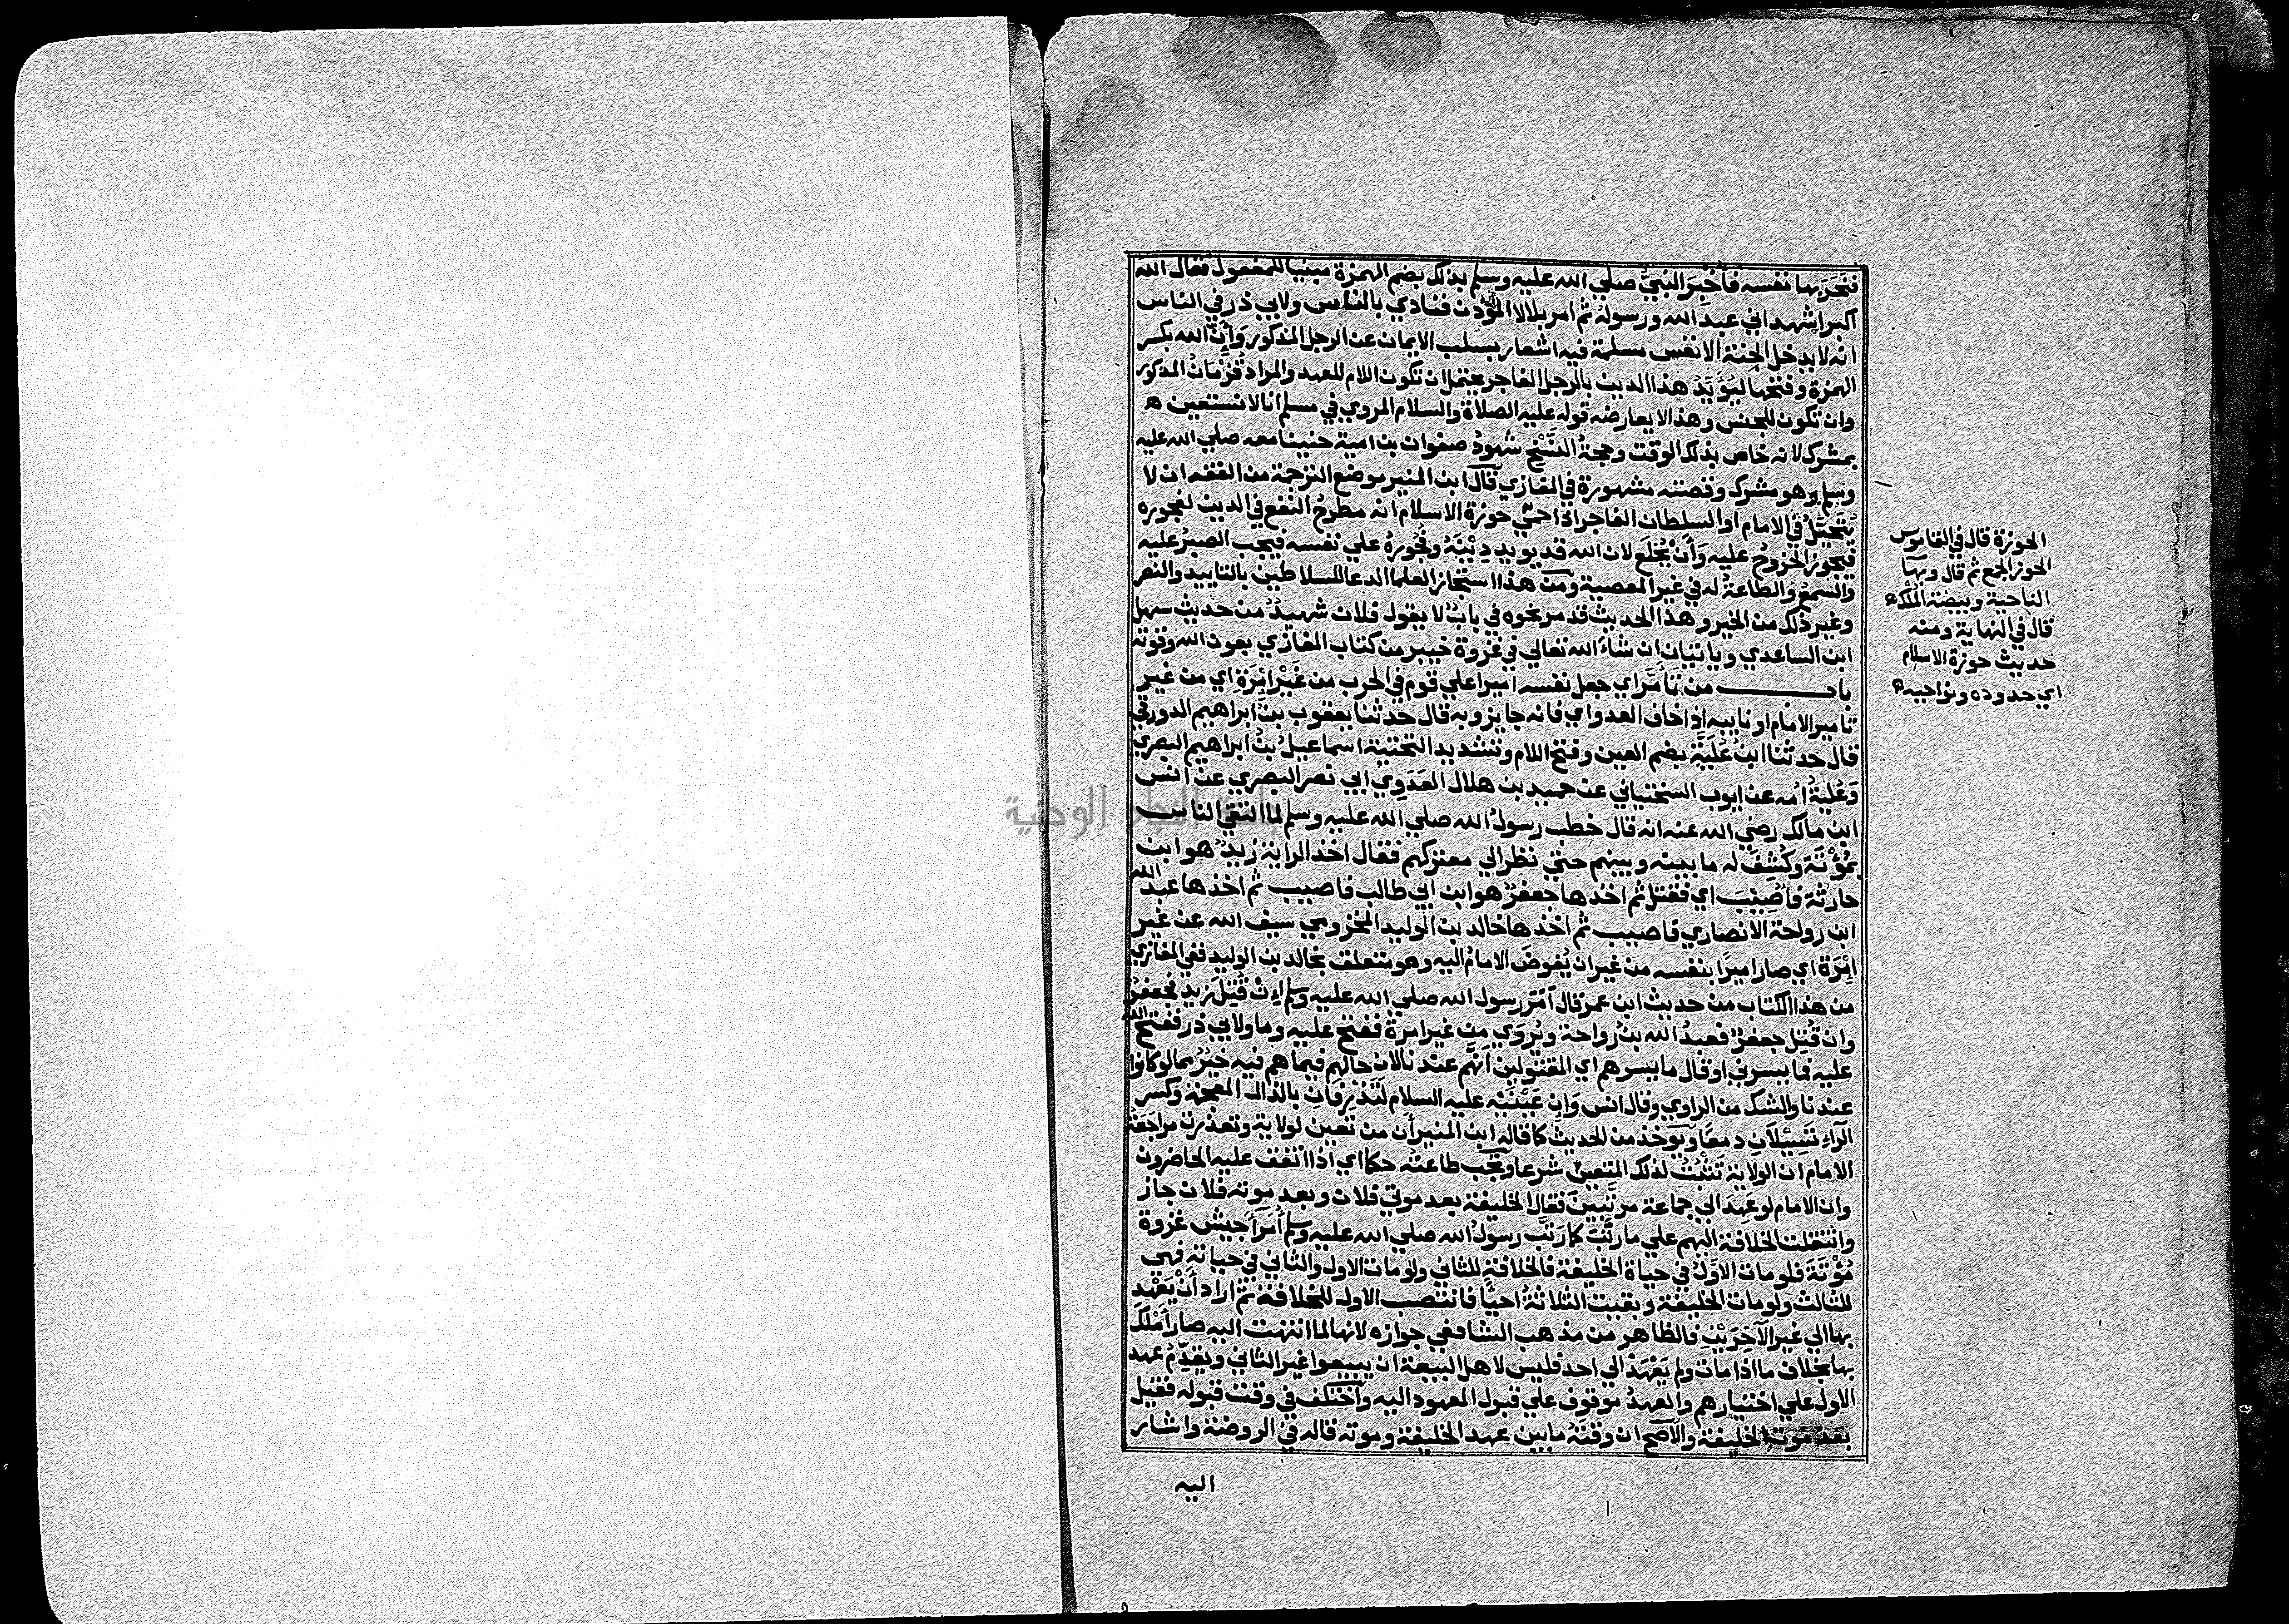 فنحر بها نفسه فأُخْبِرَ النبيُّ صلي الله عليه وسلم بذلك بضم الهمزة مبنيا للمفعول فقال الله
اكبر اشهد اني عبد الله ورسوله ثم امر بلالا المؤذن فنادي بالناس ولابي ذر في الناس
انه لا يدخل الجنة الا نفس مسلمة فيه اشعار بسلب الايمان عن الرجل المذكور وَأَنَّ الله بكسر
الهمزة وفتحها ليُؤَيِّدُ هذا الدين بالرجل الفاجر يحتمل ان تكون اللام للعهد والمراد قُزْمَان المذكور
وان تكون للجنس وهذا لا يعارضه قوله عليه الصلاة والسلام المروي في مسلم انا لا نستعين
بمشرك لانه خاص بذلك الوقت وحجةُ النَّسْخِ شهودُ صفوان بن امية حنينا معه صلي الله عليه
وسلم وهو مشرك وقصته مشهورة في المغازي قال ابن المنير موضع الترجمة من الفقه ان لا
يُتَخَيَّلُ في الامام او السلطان الفاجر اذا حميَ حوزة الاسلام انه مطرحُ النفع في الدين لفجوره
فيجوزُ الخروجُ عليه وَأَنْ يُخْلَعَ لان الله قد يويد دِيْنَهُ وفُجُورهُ علي نفسه فيجب الصبرُ عليه
والسمعُ والطاعةُ له في غير المعصية ومن هذا استجاز العلما الدعا للسلاطين بالتاييد والنصر
وغير ذلك من الخير وهذا الحديث قد مر نحوه في باب لا يقول فلان شهيدٌ من حديث سهل
ابن الساعدي وياتيان ان شاءَ الله تعالي في غزوة خيبر من كتاب المغازي بعون الله وقوته
باب من تَأَمَّرَ اي جعل نفسه اميرا علي قوم في الحرب من غَيْرِ إِمْرَةٍ اي من غير
تامير الامام او نايبه إِذا خاف العدو اي فانه جايز وبه قال حدثنا يعقوب بن ابراهيم الدورقي
قال حدثنا ابن عُلَيَّة بضم العين وفتح اللام وتشديد التحتية اسماعيل بن ابراهيم البصري
وَعُلَيَّةُ امه عن ايوب السختياني عن حميد بن هلال العَدَوِي ابي نصر البصري عن انس
ابن مالك رضي الله عنه انه قال خطب رسول الله صلي الله عليه وسلم لما التقي الناس
بمُؤْتَةَ وكُشِفَ له ما بينه وبينهم حتي نظر الي معتركهم فقال اخذ الراية زيدٌ هو ابن
حارثة فاصِيْبَ اي فقتل ثم اخذها جعفرٌ هو ابن ابي طالب فاصيب ثم اخذها عبد الله
ابن رواحة الانصاري فاصيب ثم اخذها خالد بن الوليد المخزومي سيف الله عن غير
اِمْرَة اي صار اميرًا بنفسه من غير ان يُفوضَ الامامُ اليه وهو متعلق بخالد بن الوليد ففي المغازي
من هذا الكتاب من حديث ابن عمر قال امَّرَ رسول الله صلي الله عليه وسلم إن قُتِلَ زيد فجعفرٌ
وان قُتِل جعفرٌ فعبدُ الله بنُ رواحة ويُروَي من غير امرة ففتح عليه وما ولابي ذر ففتح الله
عليه فما يسرني او قال ما يسرهم اي المقتولين أنهم عندنا لان حالهم فيما هم فيه خيرٌ مما لو كانوا
عندنا والشك من الراوي وقال انس وَإِن عَيْنَيْهِ عليه السلام لَتَذْرِفَانِ بالذال المعجمة وكسر
الرآء تَسِيْلَانِ دمعًا ويوخذ من الحديث كما قاله ابن المنير أن من تعين لولاية وتعذرت مراجعةُ
الامام ان الولاية تَثْبُتُ لذلك المتعين شرعا وتجب طاعته حكما اي اذا اتفق عليه الحاضرون
وان الامام لو عَهِدَ الي جماعة مرتَّبِينَ فقال الخليفة بعد موتي فلان وبعد موته فلان جاز
وانتقلت الخلافة اليهم علي ما رَتَّبَ كما رَتَّبَ رسولُ الله صلي الله عليه وسلم أُمَرَآءَ جيش غزوة
مُؤْتَةَ فلو مات الاوَّلُ في حياة الخليفة فالخلافة للثاني ولو مات الاول والثاني في حياته فهي
للثالث ولو مات الخليفة وبقيت الثلاثةُ احيآءً فانتصب الاول للخلافة ثم اراد أَنْ يَعْهَدَ
بها الي غير الآخَرَيْنِ فالظاهر من مذهب الشافعي جوازه لانها لما انتهت اليه صار أَمْلَكَ
بها بخلاف ما اذا مات ولم يَعْهَدْ الي احد فليس لاهل البيعة ان يبيعوا غير الثاني ويقدِّمُ عهد
الاول علي اختيارهم والعهدُ موقوف علي قبول المعهود اليه واختُلف في وقت قبوله فقيل
بعد موت الخليفة والاصح ان وقتَهُ ما بين عهد الخليفة وموته قاله في الروضة واشار
اليه
الحوزة قال في القاموس
الحوز الجمع ثم قال وبهآ
الناحية وبيضة الملك
قال في النهاية ومنه
حديث حوزة الاسلام
اي حدوده ونواحيه